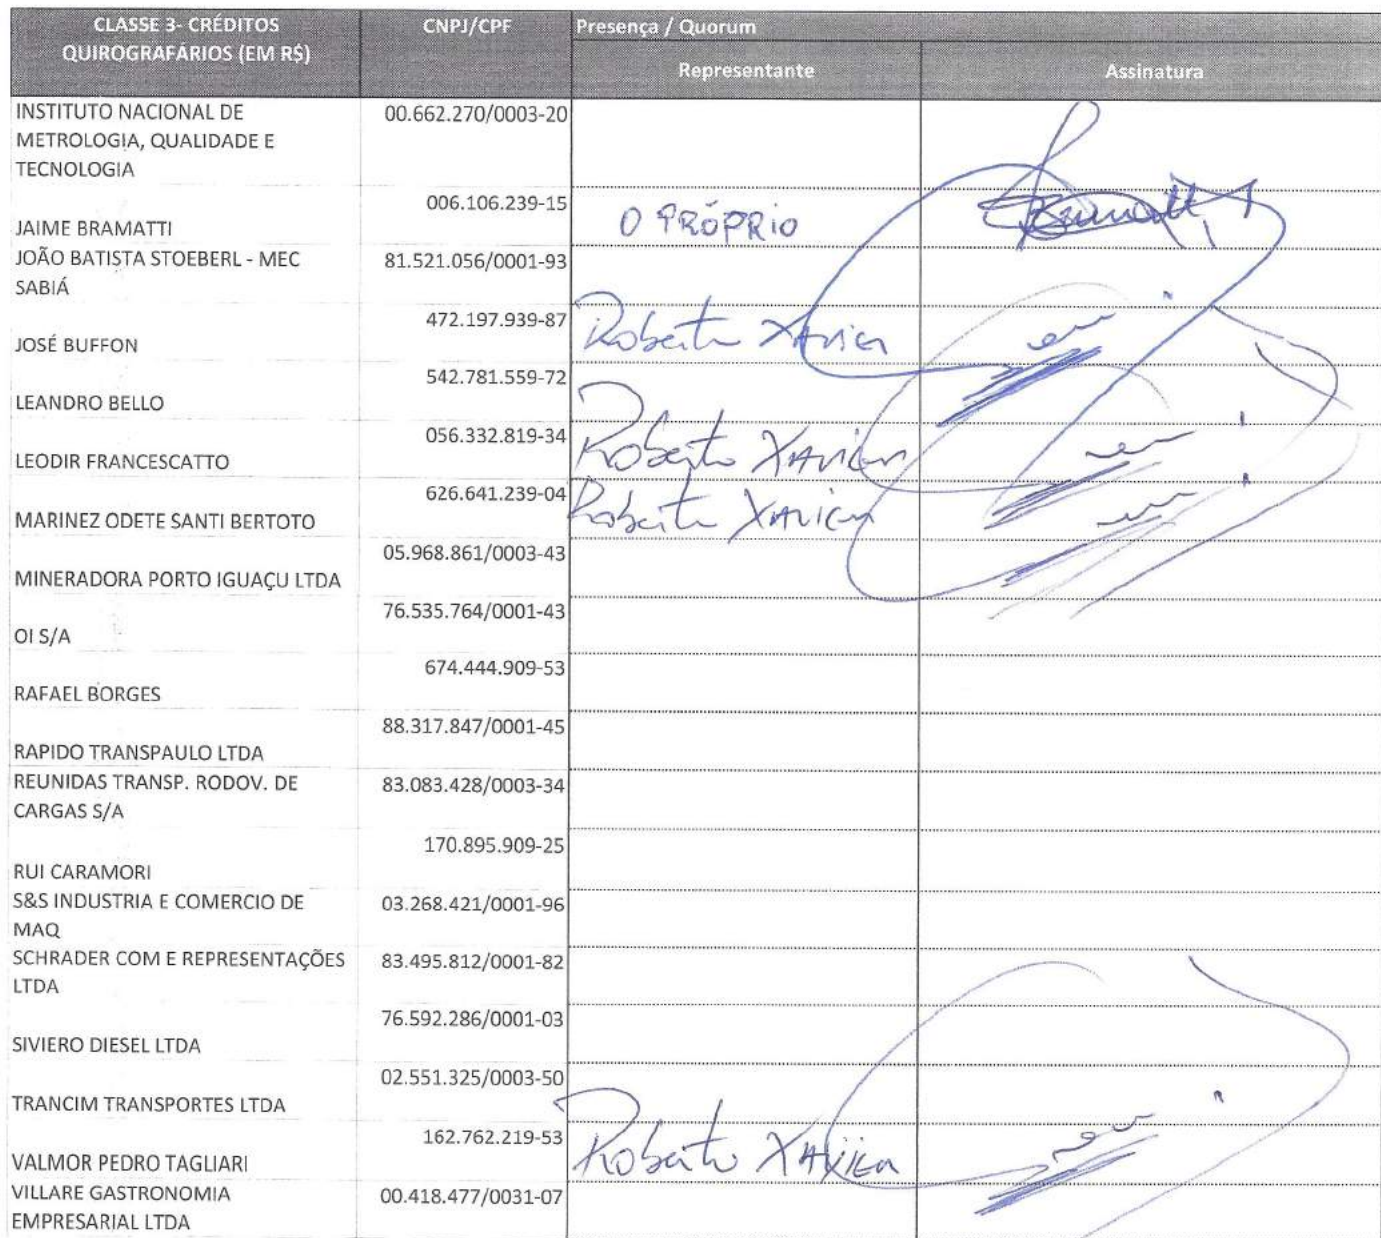 CLASSE 3- CRÉDITOS
QUIROGRAFÁRIOS (EM R$)
CNPJ/CPF
Presença / Quorum
Representante
Assinatura
INSTITUTO NACIONAL DE
METROLOGIA, QUALIDADE E
TECNOLOGIA
00.662.270/0003-20
JAIME BRAMATTI
006.106.239-15
O PRÓPRIO
JOÃO BATISTA STOEBERL - MEC
SABIÁ
81.521.056/0001-93
JOSÉ BUFFON
472.197.939-87
Roberto Xavier
LEANDRO BELLO
542.781.559-72
LEODIR FRANCESCATTO
056.332.819-34
Roberto Xavier
MARINEZ ODETE SANTI BERTOTO
626.641.239-04
Roberto Xavier
MINERADORA PORTO IGUAÇU LTDA
05.968.861/0003-43
OI S/A
76.535.764/0001-43
RAFAEL BORGES
674.444.909-53
RAPIDO TRANSPAULO LTDA
88.317.847/0001-45
REUNIDAS TRANSP. RODOV. DE
CARGAS S/A
83.083.428/0003-34
RUI CARAMORI
170.895.909-25
S&S INDUSTRIA E COMERCIO DE
MAQ
03.268.421/0001-96
SCHRADER COM E REPRESENTAÇÕES
LTDA
83.495.812/0001-82
SIVIERO DIESEL LTDA
76.592.286/0001-03
TRANCIM TRANSPORTES LTDA
02.551.325/0003-50
VALMOR PEDRO TAGLIARI
162.762.219-53
Roberto Xavier
VILLARE GASTRONOMIA
EMPRESARIAL LTDA
00.418.477/0031-07